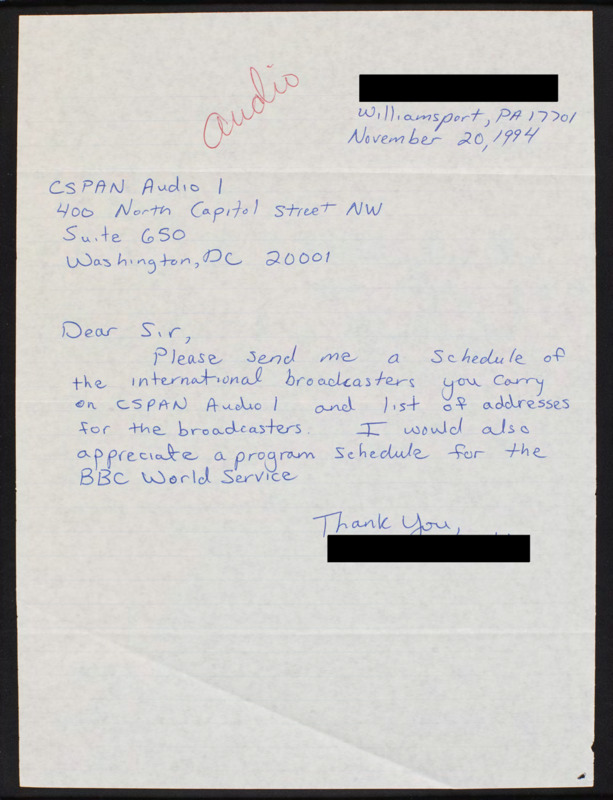 audio
Williamsport, PA 17701
November 20, 1994
CSPAN Audio 1
400 North Capitol Street NW
Suite 650
Washington, DC 20001
Dear Sir,
Please send me a schedule of
the international broadcasters you carry
on CSPAN Audio 1 and list of addresses
for the broadcasters. I would also
appreciate a program schedule for the
BBC World Service
Thank You,